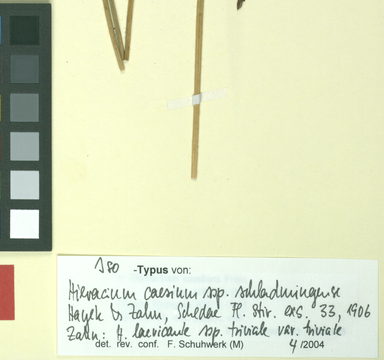 Iso -Typus von:
Hieracium caesium ssp. schladmingense
Hayek & Zahn, Schedae Fl. Stir. exs. 33, 1906
Zahn: H. laevicaule ssp. triviale var. triviale
det. rev. conf. F. Schuhwerk (M) 4/2004